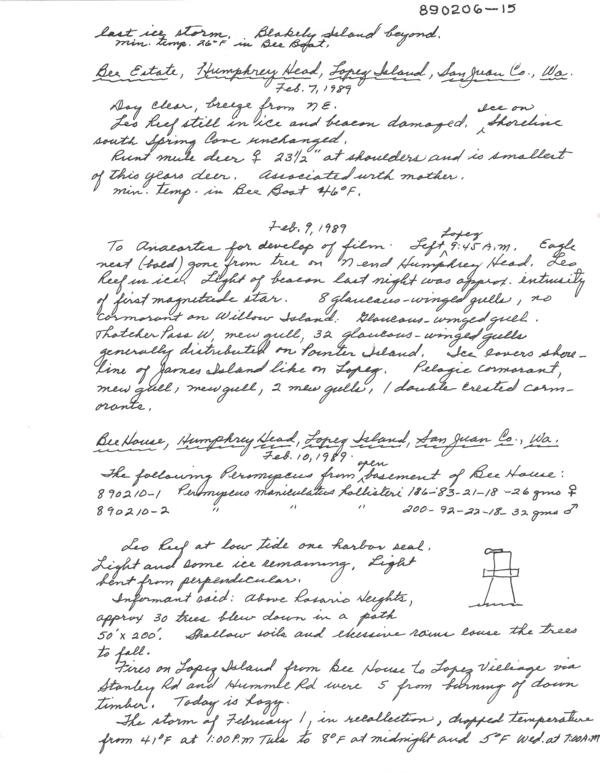 890206-15
last ice storm. Blakely Island beyond.
min. temp. 26°F in Bee Boat.
Bee Estate, Humphrey Head, Lopez Island, San Juan Co., Wa.
Feb. 7, 1989
Day clear, breeze from NE. Ice on
Leo Reef still in ice and beacon damaged. ^ Shoreline
south Spring Cove unchanged.
Runt mule deer ♀ 23½" at shoulders and is smallest
of this years deer. Associated with mother.
min. temp. in Bee Boat 46°F.
Feb. 9, 1989
To Anacortes for develop of film. Left ^ Lopez 9:45 A.M. Eagle
nest (bald) gone from tree on N end Humphrey Head. Leo
Reef in ice. Light of beacon last night was approx. intensity
of first magnitude star. 8 glaucous-winged gulls, no
cormorant on Willow Island. Glaucous-winged gull.
Thatcher Pass W, mew gull, 32 glaucous-winged gulls
generally distributed on Pointer Island. Ice covers shore-
line of James Island like on Lopez. Pelagic cormorant,
mew gull, mew gull, 2 mew gulls, 1 double crested corm-
orants.
Bee House, Humphrey Head, Lopez Island, San Juan Co., Wa.
Feb. 10, 1989.
The following Peromyscus from ^ open basement of Bee House:
890210-1 Peromyscus maniculatus hollisteri 186-83-21-18 -26 gms ♀
890210-2 " " " 200-92-22-18- 32 gms ♂
Leo Reef at low tide one harbor seal.
Light and some ice remaining, Light
bent from perpendicular.
Informant said: Above Rosario Heights,
approx 30 trees blew down in a path
50' x 200'. Shallow soils and excessive rains cause the trees
to fall.
Fires on Lopez Island from Bee House to Lopez Villiage via
Stanley Rd and Hummle Rd were 5 from burning of down
timber. Today is hazy.
The storm of February 1, in recollection, dropped temperature
from 41°F at 1:00 P.M Tues to 8°F at midnight and 5°F Wed. at 7:00 A.M